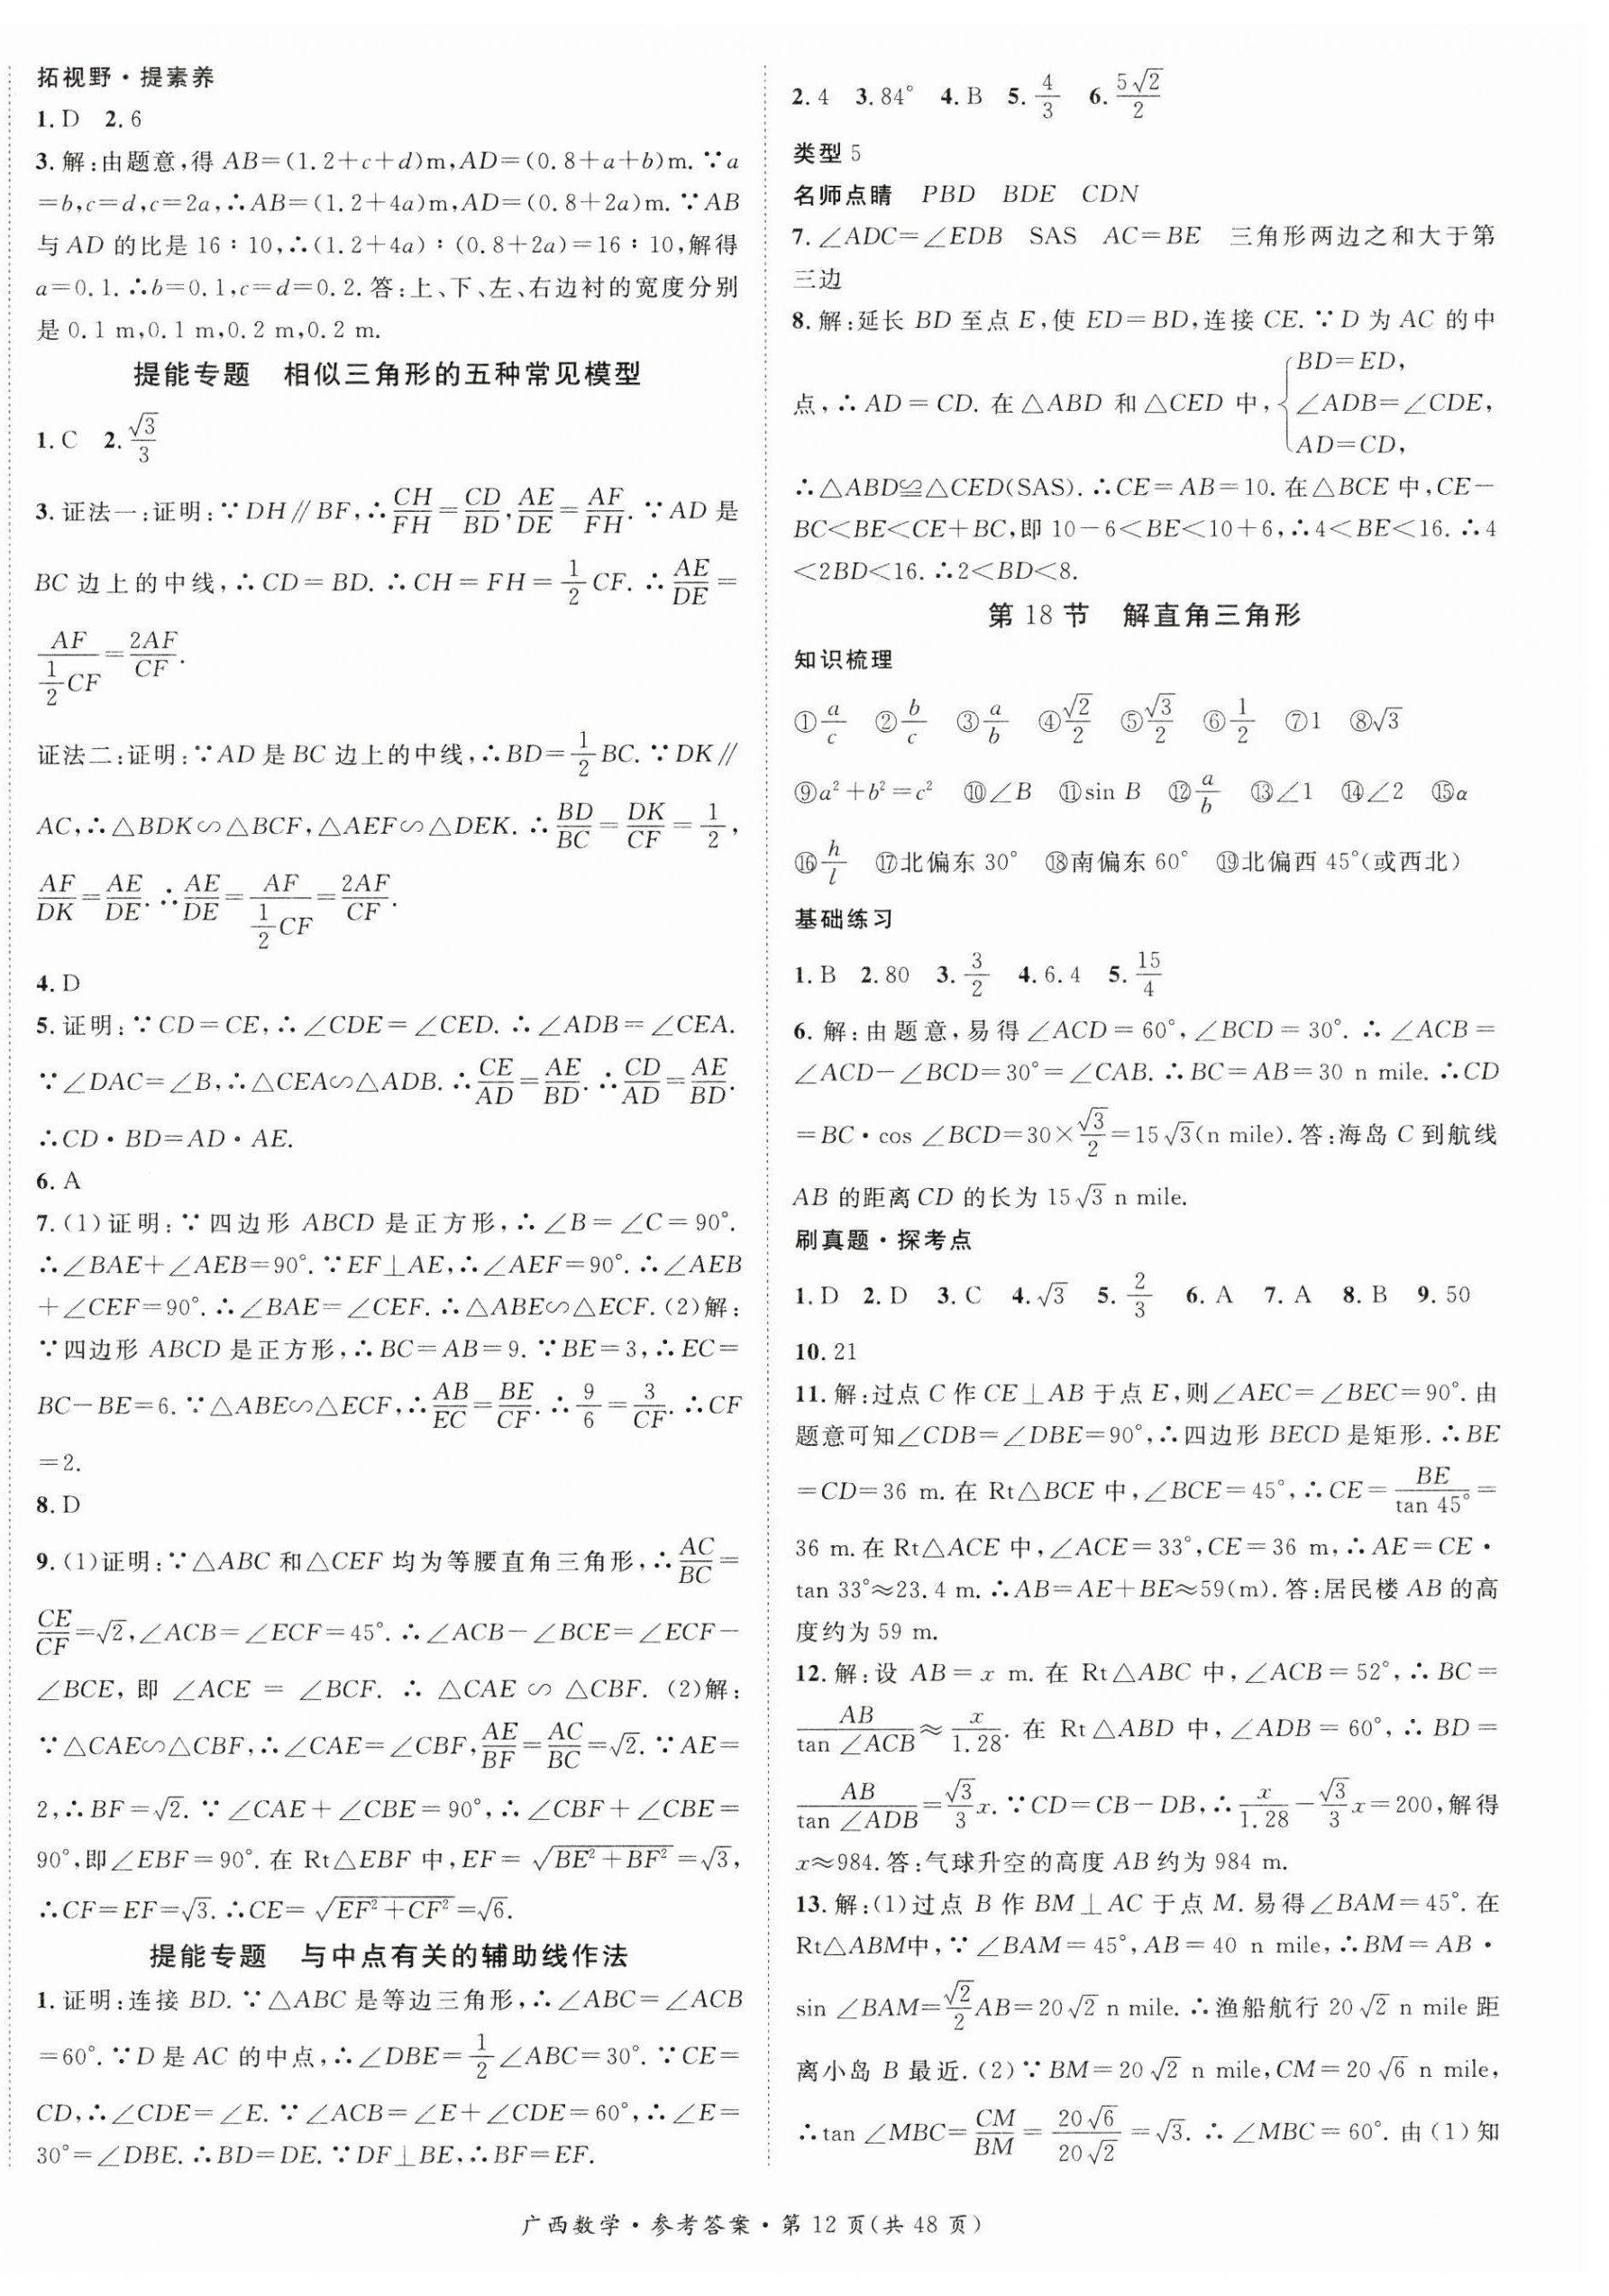 拓视野·提素养
1.D 2.6
3.解:由题意,得 AB=(1.2+c+d)m,AD=(0.8+a+b)m.∵a
=b,c=d,c=2a,∴AB=(1.2+4a)m,AD=(0.8+2a)m.∵AB
与 AD 的比是 16∶10,∴(1.2+4a)∶(0.8+2a)=16∶10,解得
a=0.1.∴b=0.1,c=d=0.2.答:上、下、左、右边衬的宽度分别
是 0.1 m,0.1 m,0.2 m,0.2 m.
提能专题 相似三角形的五种常见模型
1.C 2.√3/3
3.证法一:证明:∵DH∥BF,∴CH/FH=CD/BD,AE/DE=AF/FH.∵AD 是
BC 边上的中线,∴CD=BD.∴CH=FH=1/2 CF.∴AE/DE=
AF/(1/2 CF)=2AF/CF.
证法二:证明:∵AD 是 BC 边上的中线,∴BD=1/2 BC.∵DK∥
AC,∴△BDK∽△BCF,△AEF∽△DEK.∴BD/BC=DK/CF=1/2,
AF/DK=AE/DE.∴AE/DE=AF/(1/2 CF)=2AF/CF.
4.D
5.证明:∵CD=CE,∴∠CDE=∠CED.∴∠ADB=∠CEA.
∵∠DAC=∠B,∴△CEA∽△ADB.∴CE/AD=AE/BD.∴CD/AD=AE/BD.
∴CD·BD=AD·AE.
6.A
7.(1)证明:∵四边形 ABCD 是正方形,∴∠B=∠C=90°.
∴∠BAE+∠AEB=90°.∵EF⊥AE,∴∠AEF=90°.∴∠AEB
+∠CEF=90°.∴∠BAE=∠CEF.∴△ABE∽△ECF.(2)解:
∵四边形 ABCD 是正方形,∴BC=AB=9.∵BE=3,∴EC=
BC-BE=6.∵△ABE∽△ECF,∴AB/EC=BE/CF.∴9/6=3/CF.∴CF
=2.
8.D
9.(1)证明:∵△ABC 和△CEF 均为等腰直角三角形,∴AC/BC=
CE/CF=√2,∠ACB=∠ECF=45°.∴∠ACB-∠BCE=∠ECF-
∠BCE,即 ∠ACE = ∠BCF. ∴ △CAE ∽ △CBF. (2)解:
∵△CAE∽△CBF,∴∠CAE=∠CBF,AE/BF=AC/BC=√2.∵AE=
2,∴BF=√2.∵∠CAE+∠CBE=90°,∴∠CBF+∠CBE=
90°,即∠EBF=90°.在 Rt△EBF 中,EF=√(BE²+BF²)=√3,
∴CF=EF=√3.∴CE=√(EF²+CF²)=√6.
提能专题 与中点有关的辅助线作法
1.证明:连接 BD.∵△ABC 是等边三角形,∴∠ABC=∠ACB
=60°.∵D 是 AC 的中点,∴∠DBE=1/2∠ABC=30°.∵CE=
CD,∴∠CDE=∠E.∵∠ACB=∠E+∠CDE=60°,∴∠E=
30°=∠DBE.∴BD=DE.∵DF⊥BE,∴BF=EF.
2.4 3.84° 4.B 5.4/3 6.5√2/2
类型 5
名师点睛 PBD BDE CDN
7.∠ADC=∠EDB SAS AC=BE 三角形两边之和大于第
三边
8.解:延长 BD 至点 E,使 ED=BD,连接 CE.∵D 为 AC 的中
点,∴AD=CD.在△ABD 和△CED 中,{BD=ED,
∠ADB=∠CDE,
AD=CD,
∴△ABD≌△CED(SAS).∴CE=AB=10.在△BCE 中,CE-
BC<BE<CE+BC,即 10-6<BE<10+6,∴4<BE<16.∴4
<2BD<16.∴2<BD<8.
第 18 节 解直角三角形
知识梳理
①a/c ②b/c ③a/b ④√2/2 ⑤√3/2 ⑥1/2 ⑦1 ⑧√3
⑨a²+b²=c² ⑩∠B ⑪sin B ⑫a/b ⑬∠1 ⑭∠2 ⑮α
⑯h/l ⑰北偏东 30° ⑱南偏东 60° ⑲北偏西 45°(或西北)
基础练习
1.B 2.80 3.3/2 4.6.4 5.15/4
6.解:由题意,易得∠ACD=60°,∠BCD=30°.∴∠ACB=
∠ACD-∠BCD=30°=∠CAB.∴BC=AB=30 n mile.∴CD
=BC·cos ∠BCD=30×√3/2=15√3(n mile).答:海岛 C 到航线
AB 的距离 CD 的长为 15√3 n mile.
刷真题·探考点
1.D 2.D 3.C 4.√3 5.2/3 6.A 7.A 8.B 9.50
10.21
11.解:过点 C 作 CE⊥AB 于点 E,则∠AEC=∠BEC=90°.由
题意可知∠CDB=∠DBE=90°,∴四边形 BECD 是矩形.∴BE
=CD=36 m.在 Rt△BCE 中,∠BCE=45°,∴CE=BE/tan 45°=
36 m.在 Rt△ACE 中,∠ACE=33°,CE=36 m,∴AE=CE·
tan 33°≈23.4 m.∴AB=AE+BE≈59(m).答:居民楼 AB 的高
度约为 59 m.
12.解:设 AB=x m.在 Rt△ABC 中,∠ACB=52°,∴BC=
AB/tan ∠ACB≈x/1.28.在 Rt△ABD 中,∠ADB=60°,∴BD=
AB/tan ∠ADB=√3/3 x.∵CD=CB-DB,∴x/1.28-√3/3 x=200,解得
x≈984.答:气球升空的高度 AB 约为 984 m.
13.解:(1)过点 B 作 BM⊥AC 于点 M.易得∠BAM=45°.在
Rt△ABM中,∵∠BAM=45°,AB=40 n mile,∴BM=AB·
sin ∠BAM=√2/2 AB=20√2 n mile.∴渔船航行 20√2 n mile 距
离小岛 B 最近.(2)∵BM=20√2 n mile,CM=20√6 n mile,
∴tan ∠MBC=CM/BM=20√6/20√2=√3.∴∠MBC=60°.由(1)知
广西数学·参考答案·第 12 页(共 48 页)